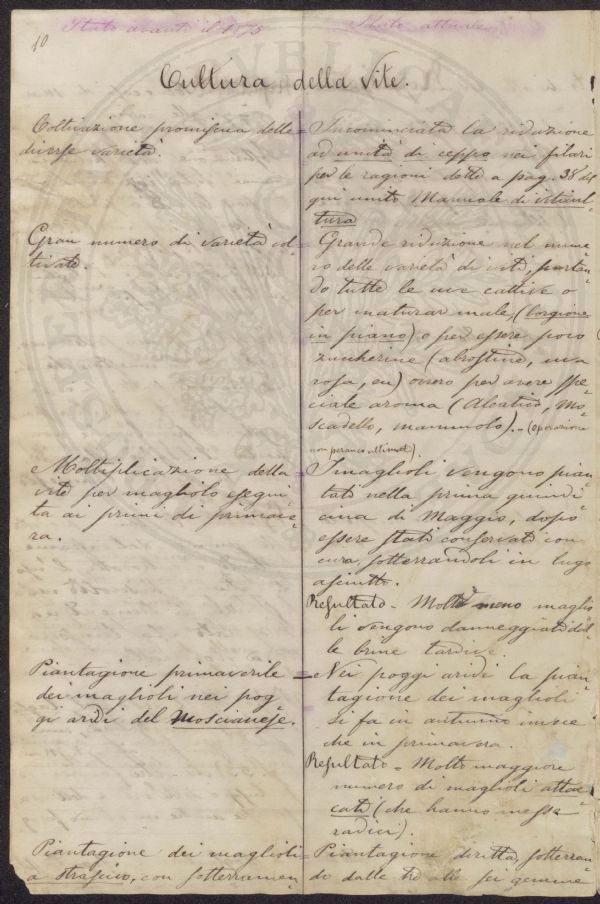 10
Stato avanti il 1875
Stato attuale
Cultura della Vite.
Coltivazione promiscua delle
diverse varietà.
Gran numero di varietà col-
tivate.
Moltiplicazione della
vite per magliolo esegui-
ta ai primi di primave-
ra.
Piantagione primaverile
dei maglioli nei pog-
gi aridi del Moscianese.
Piantagione dei maglioli
a strascico, con sotterramen-
= Incominciata la riduzione
ad unità di ceppo nei filari
per le ragioni dette a pag. 38 del
qui unito Manuale di viticul-
tura
= Grande riduzione nel nume-
ro delle varietà di viti,
do tutte le uve cattive o
per maturar male, (borgione
in piano) o per essere poco
zuccherine (abrostine, uva
rosa, ) ovvero per avere spe-
ciale aroma (Aleatico, Mo-
scadello, mammolo). - (operazione
non peranco ultimata).
= I maglioli vengono pian-
tati nella prima quindi-
cina di Maggio, dopo
essere stati conservati con
cura, sotterrandoli in luogo
asciutto.
Resultato - Molto meno maglio-
li vengono danneggiati dal-
le brine tardive.
= Nei poggi aridi la pian-
tagione dei maglioli
si fa in autunno invece
che in primavera.
Resultato = Molto maggiore
numero di maglioli attac-
cati (che hanno messe
radici).
= Piantagione diritta, sotterran-
do dalle tre alle sei gemme